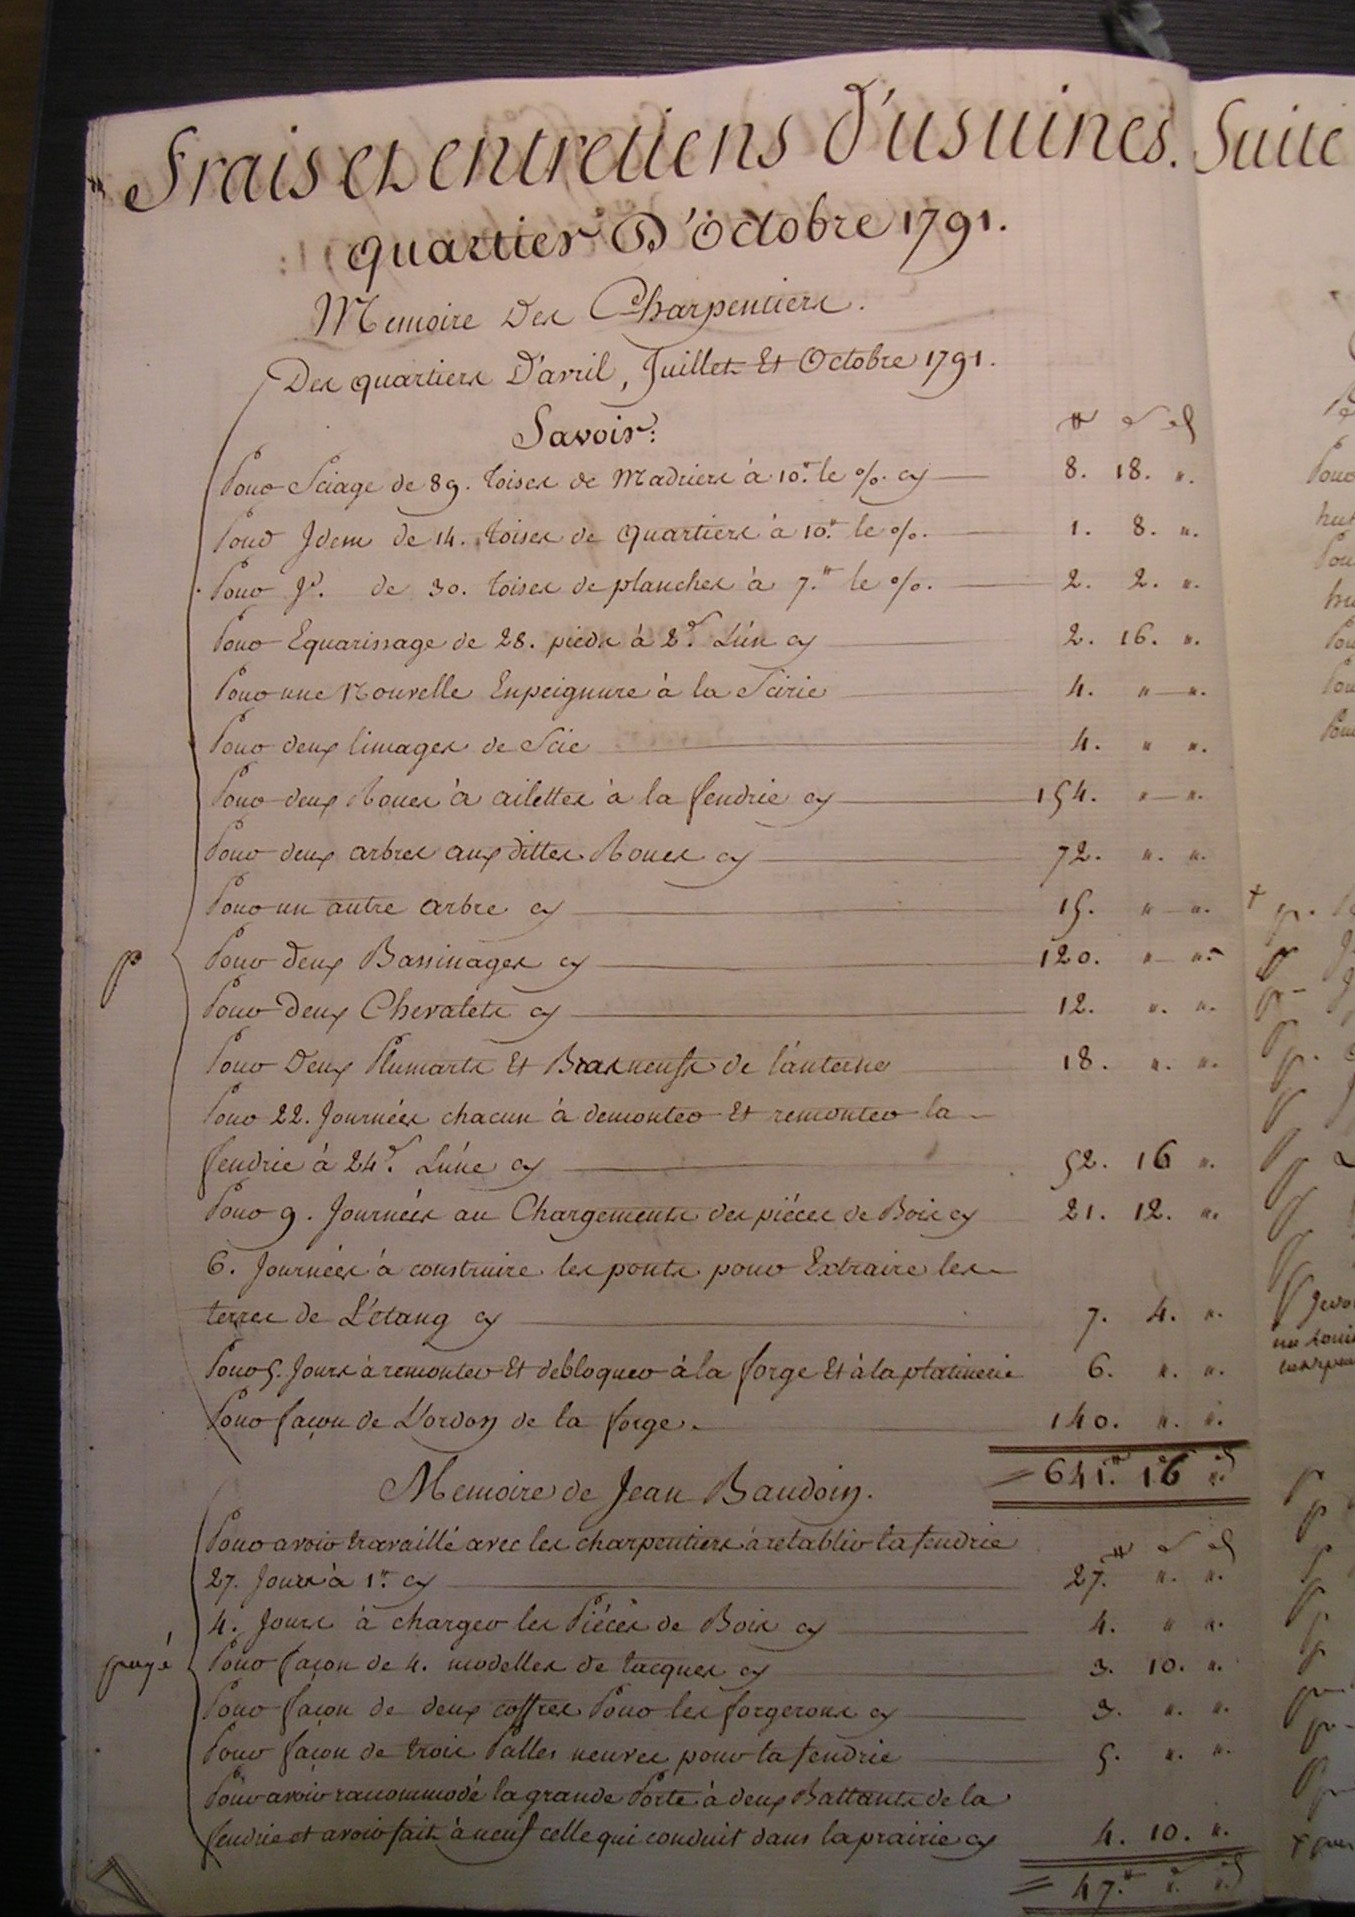 Frais et entretiens d'usuines. Suite
quartier D'Octobre 1791.
Memoire Des Charpentiers.
Des quartiers D'avril, Juillet Et Octobre 1791.
Savoir:
Pour Sciage de 89. toises de Madriers à 10.# le %. cy 8. 18. "
Pour Idem de 14. toises de Quartiers à 10.# le %. 1. 8. "
Pour Jd. de 30. toises de planches à 7.# le %. 2. 2. "
Pour Equarissage de 28. pieds à 2s. L'un cy 2. 16. "
Pour une Nouvelle Enpeignure à la Scirie 4. " "
Pour deux limages de Scie 4. " "
Pour deux Roues à ailettes à la fendrie cy 154. " "
Pour deux arbres aux dittes Roues cy 72. " "
Pour un autre arbre cy 15. " "
Pour deux Bassinages cy 120. " "
Pour Deux Chevalets cy 12. " "
Pour Deux Plumarts Et Bras neufs de l'anterne 18. " "
Pour 22. Journées chacun à demonter Et remonter la
fendrie à 24s. L'une cy 52. 16 "
Pour 9. Journées au Chargements des piéces de Bois cy 21. 12. "
6. Journées à construire les ponts pour Extraire les
terres de L'étang cy 7. 4. "
Pour 5. Jours à remonter Et debloquer à la forge Et à la platinerie 6. " "
Pour façon de L'ordon de la forge. 140. " "
641.# 16 "
Memoire de Jean Baudoin.
Pour avoir travaillé avec les charpentiers à retablir la fendrie
27. Jours à 1.# cy 27.# " "
4. Jours à charger les Piéces de Bois cy 4. " "
payé
Pour façon de 4. modelles de tacques cy 3. 10. "
Pour façon de deux coffres Pour les forgerons cy 3. " "
Pour façon de trois Palles neuves pour la fendrie 5. " "
Pour avoir racommodé la grande Porte à deux Battants de la
fendrie et avoir fait à neuf celle qui conduit dans la prairie cy 4. 10. "
47.# " "